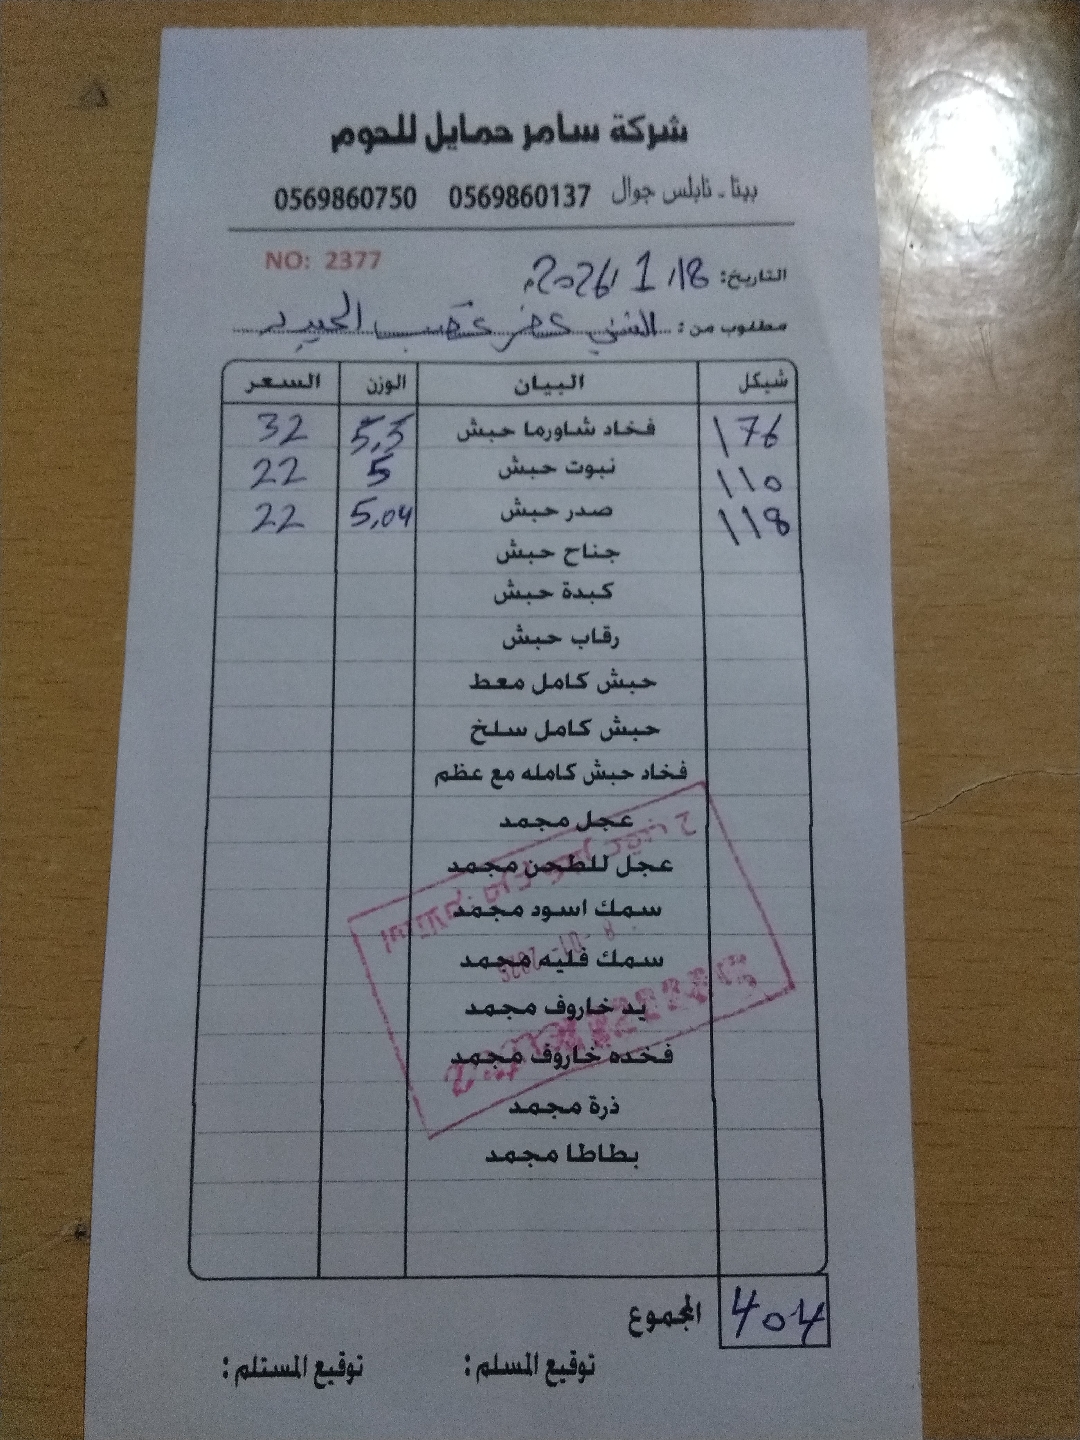 شركة سامر حمايل للحوم
بيتا - نابلس جوال 0569860137 0569860750
NO: 2377
التاريخ: 18 / 1 / 2026م
مطلوب من: الشني
شيكل البيان الوزن السعر
176 فخاد شاورما حبش 5,5 32
110 نبوت حبش 5 22
118 صدر حبش 5,04 22
جناح حبش
كبدة حبش
رقاب حبش
حبش كامل معط
حبش كامل سلخ
فخاد حبش كامله مع عظم
عجل مجمد
عجل للطحن مجمد
سمك اسود مجمد
سمك فليه مجمد
يد خاروف مجمد
فخده خاروف مجمد
ذرة مجمد
بطاطا مجمد
المجموع 404
توقيع المسلم : توقيع المستلم :